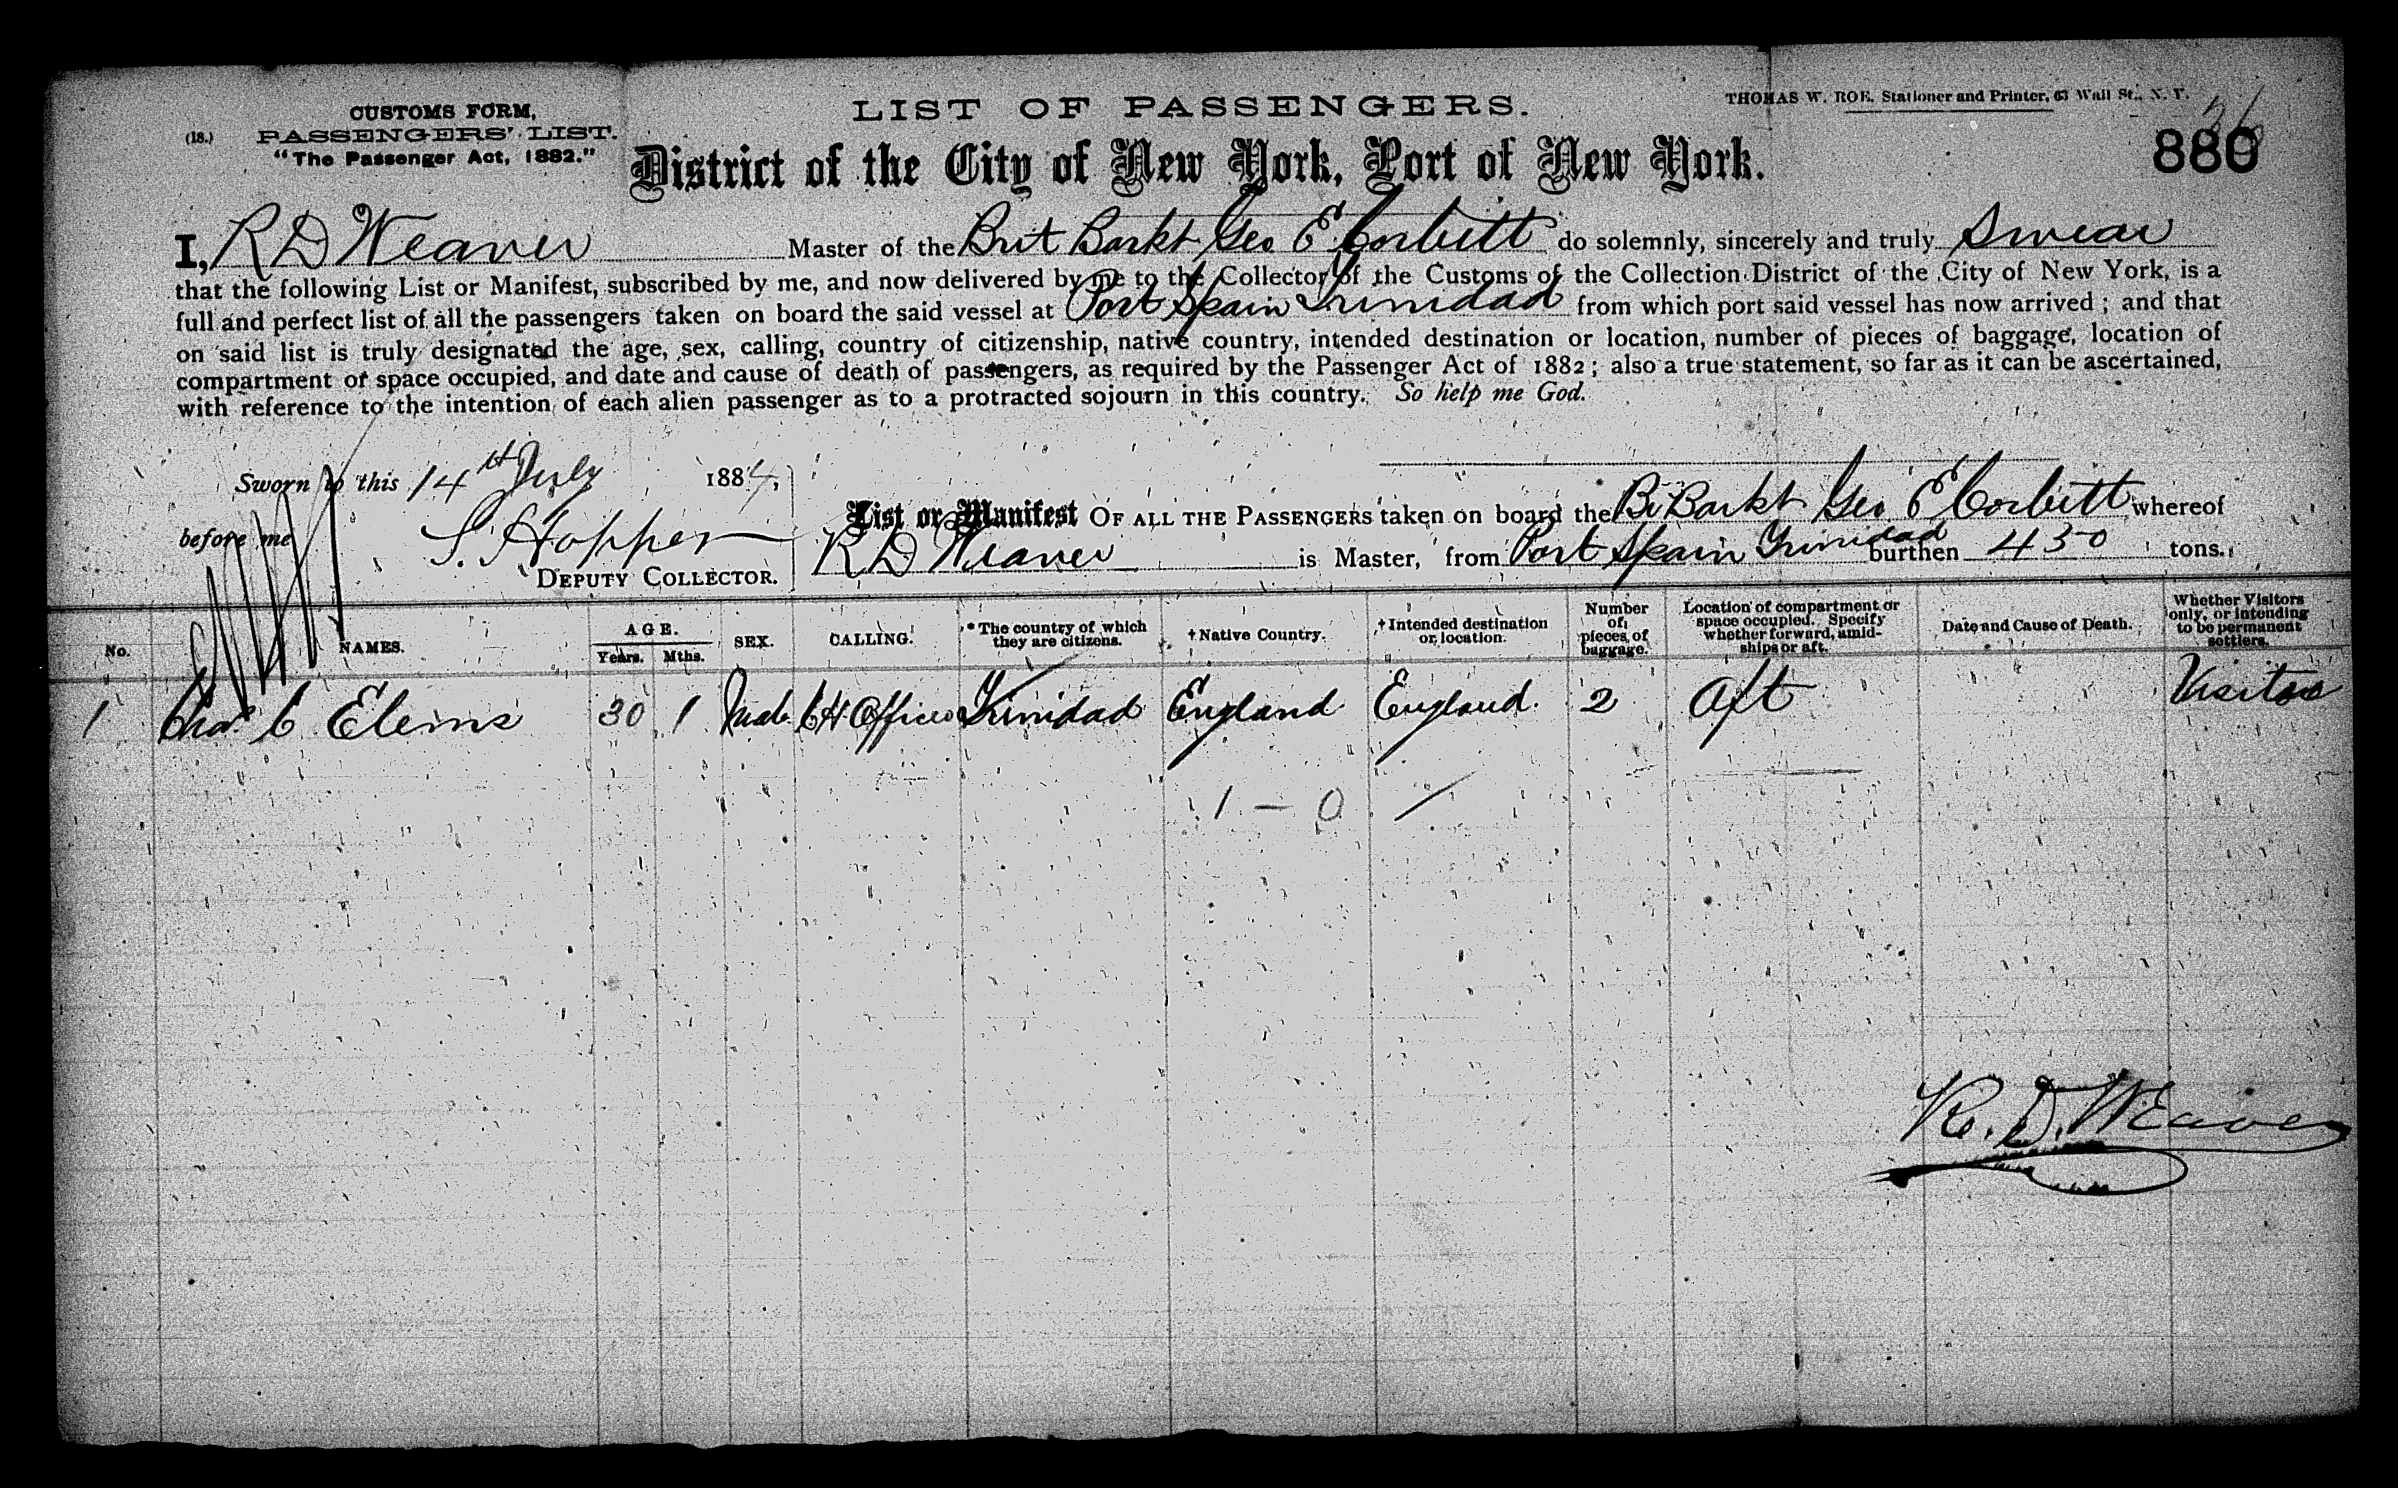 CUSTOMS FORM,
(18.) PASSENGERS' LIST.
"The Passenger Act, 1882."
LIST OF PASSENGERS.
THOMAS W. ROE, Stationer and Printer, 63 Wall St., N. Y.
District of the City of New York, Port of New York.
880
I, R D Weaver Master of the Brit Barkt Geo E Corbitt do solemnly, sincerely and truly Swear
that the following List or Manifest, subscribed by me, and now delivered by me to the Collector of the Customs of the Collection District of the City of New York, is a
full and perfect list of all the passengers taken on board the said vessel at Port Spain Trinidad from which port said vessel has now arrived; and that
on said list is truly designated the age, sex, calling, country of citizenship, native country, intended destination or location, number of pieces of baggage, location of
compartment or space occupied, and date and cause of death of passengers, as required by the Passenger Act of 1882; also a true statement, so far as it can be ascertained,
with reference to the intention of each alien passenger as to a protracted sojourn in this country. So help me God.
Sworn to this 14th July 1884,
before me S. Hopper
DEPUTY COLLECTOR.
List or Manifest OF ALL THE PASSENGERS taken on board the Br Barkt Geo E Corbitt whereof
R D Weaver is Master, from Port Spain Trinidad burthen 430 tons.
No. NAMES. AGE. Years. Mths. SEX. CALLING. * The country of which they are citizens. † Native Country. † Intended destination or location. Number of pieces of baggage. Location of compartment or space occupied. Specify whether forward, amidships or aft. Date and Cause of Death. Whether Visitors only, or intending to be permanent settlers.
1 Chas C Elems 30 1 Male CH Officer Trinidad England England. 2 Aft Visitor
1 - 0
R. D. Weaver